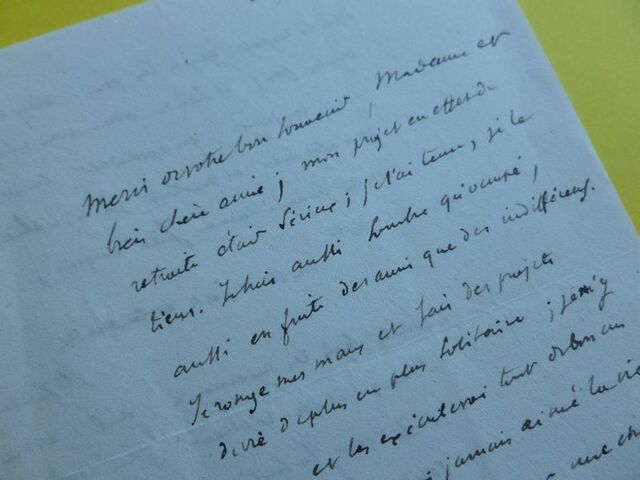 Merci de votre bon souvenir, Madame et
bien chère amie ; mon projet en effet de
retraite était sérieux ; je l'ai tenu, je le
tiens. Je suis aussi sombre qu'ancré,
aussi en fuite des amis que des indifférents.
Je ronge mes maux et fais des projets
de vie de plus en plus solitaire ; j'y
et les exécuterai tout de bon un
jamais aimé la vie
une